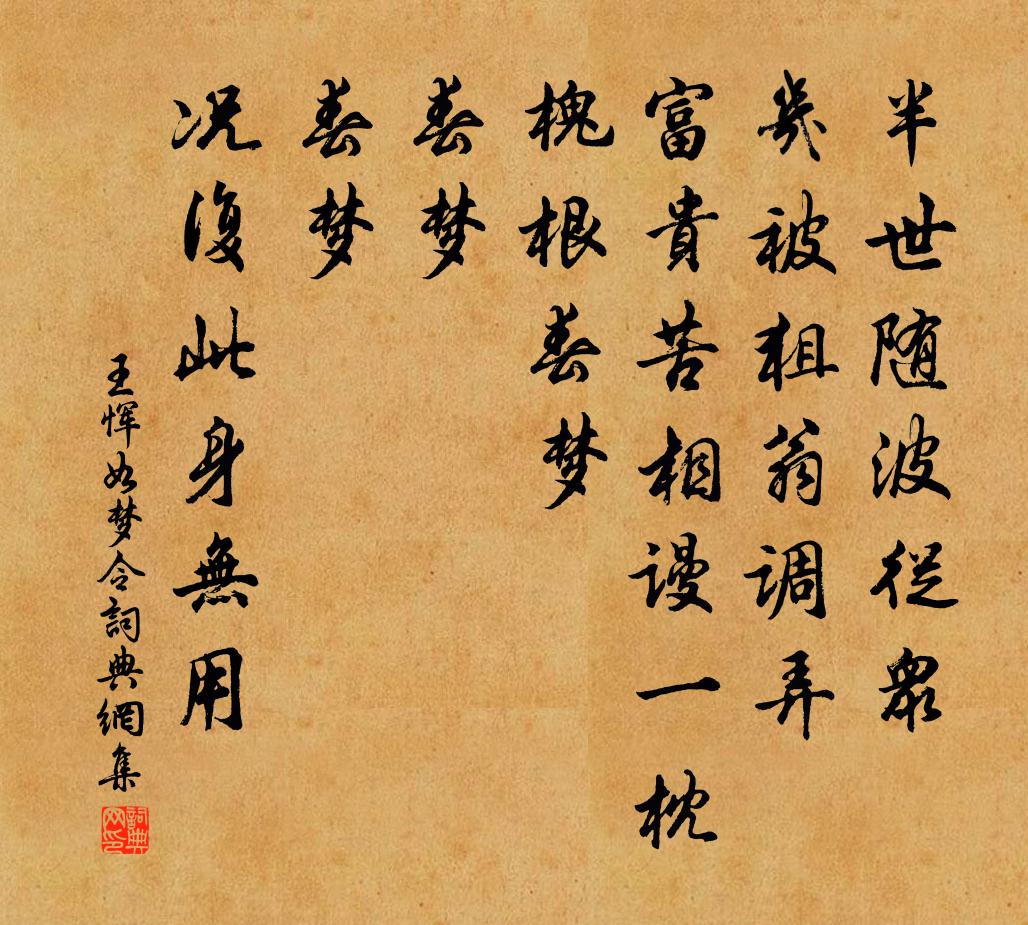 半世随波從衆
幾被狙翁調弄
富貴苦相謾一枕
槐根春梦
春梦
春梦
况復此身無用
王恽如梦令詞典網集
詞典网印